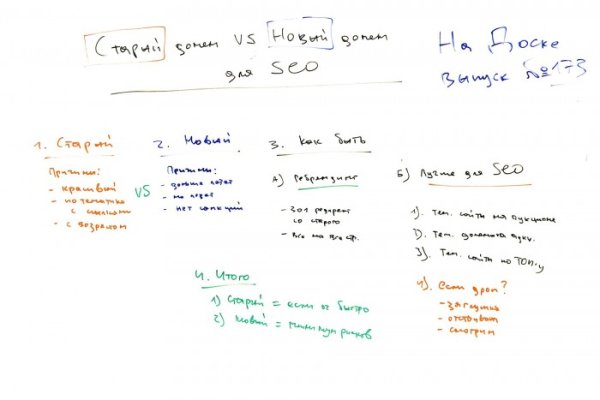 Старый домен VS Новый домен
для SEO
На Доске
Выпуск №173
1. Старый
Причины:
- красивый
- по тематике
с ссылками
- с возрастом
VS
2. Новый
Причины:
- дольше
- не
- нет санкций
3. Как быть
А) Ребрендинг
- 301 редирект
со старого
- Все на все стр.
Б) Лучше для SEO
1). Тем. сайты на аукционе
2). Тем. домена аукц.
3). Тем. сайты по ТОП-у
4). если дроп?
- заглушка
- отстаивать
- смотрим
4. Итого
1) Старый = если быстро
2) Новый = минимум рисков